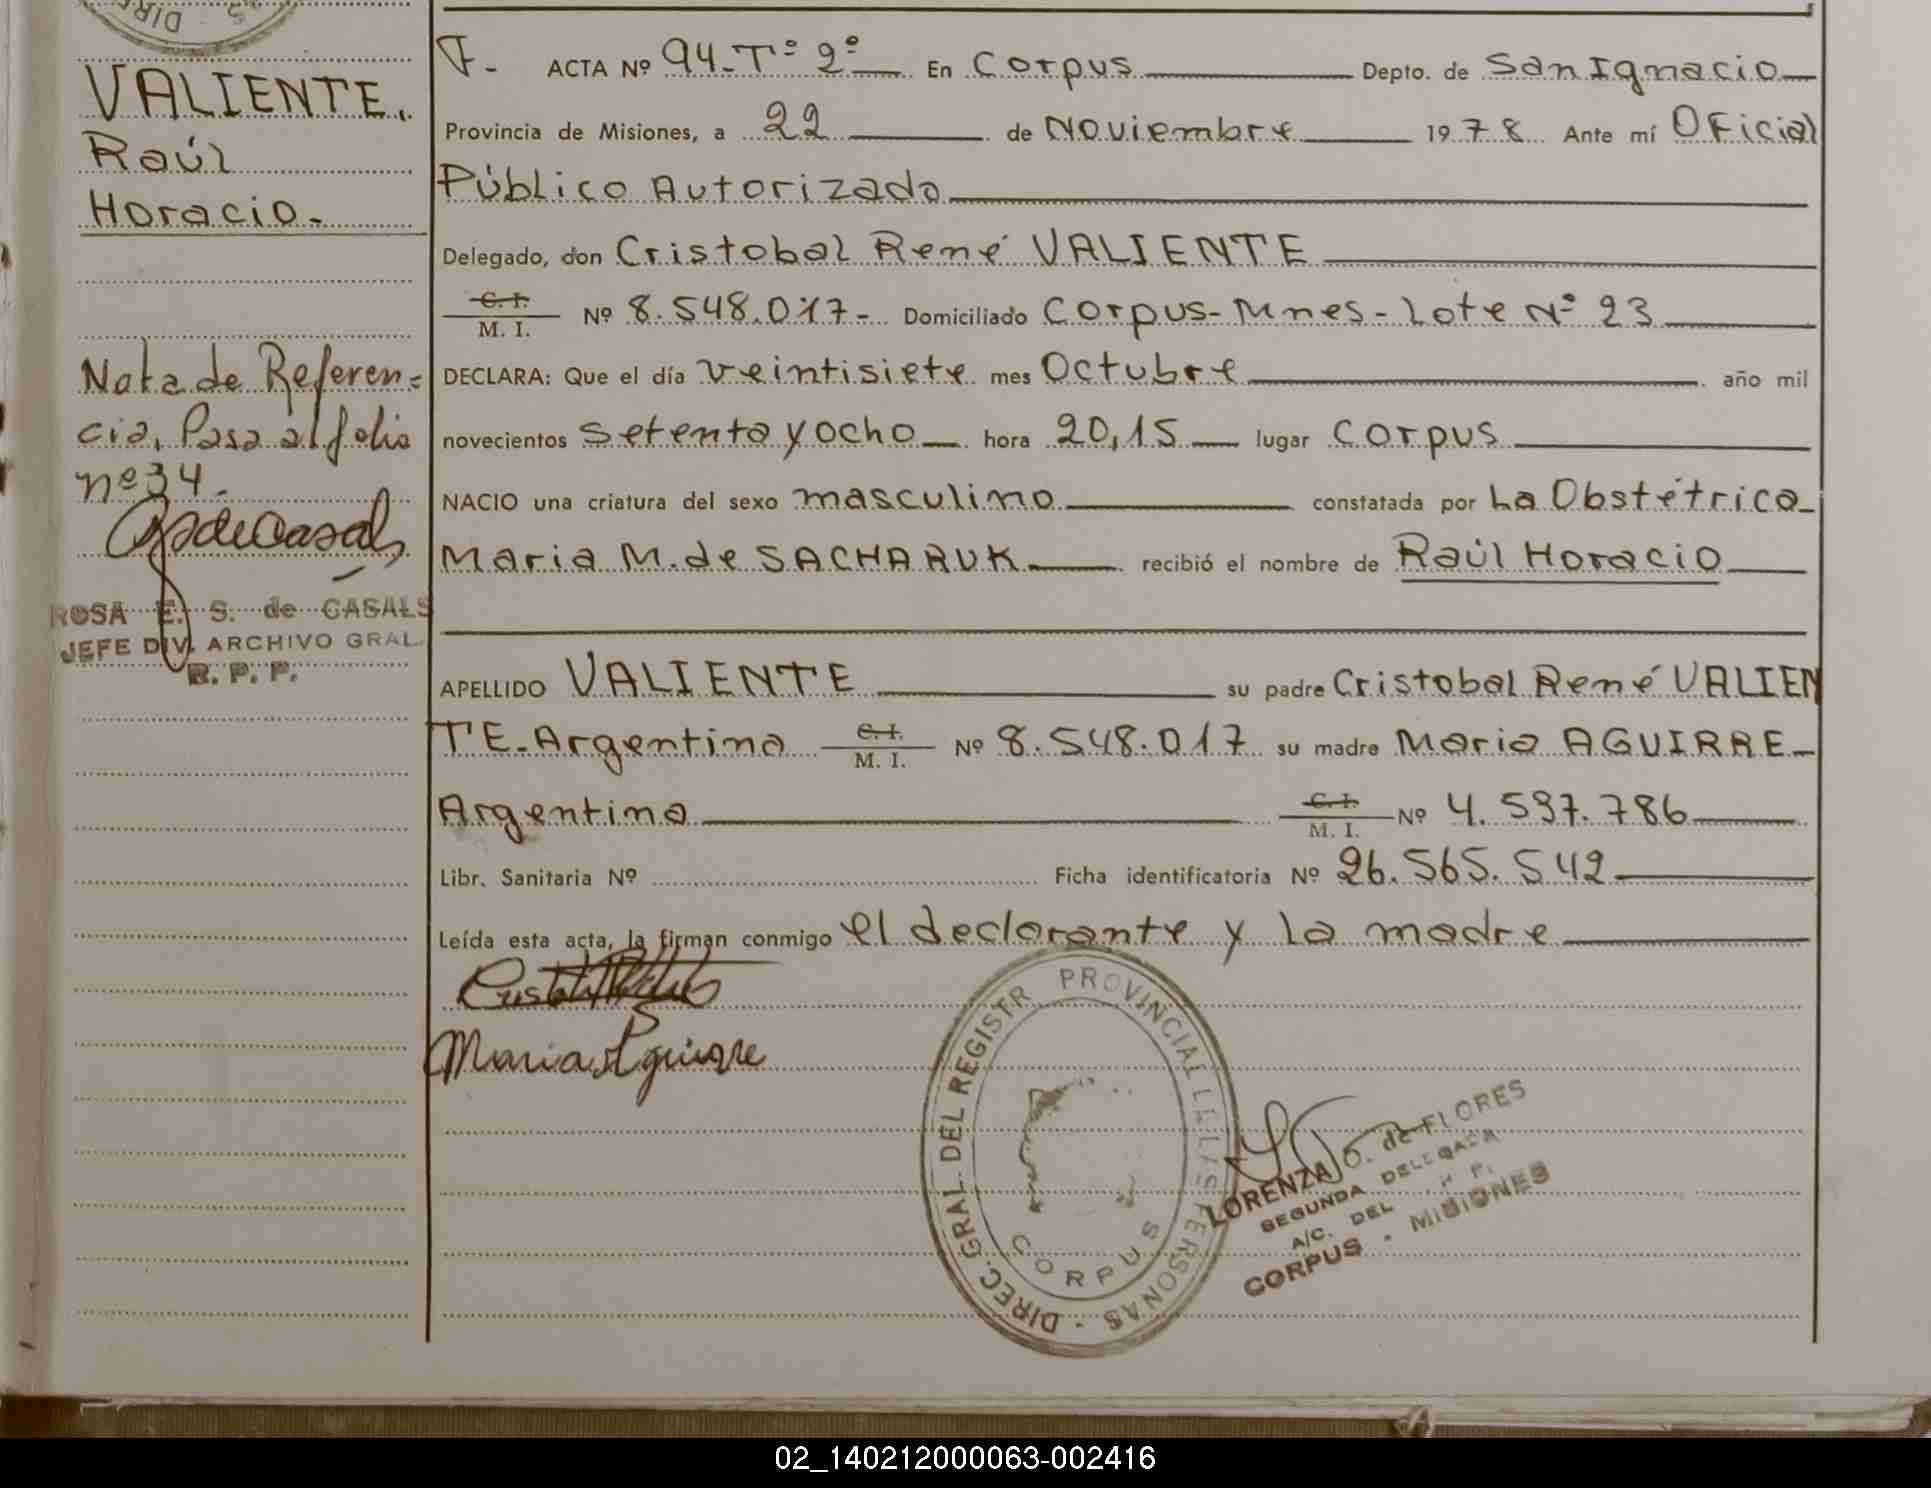 VALIENTE,
Raúl
Horacio.-
Nota de Referen=
cia, Pasa al folio
nº 34.-
ROSA E. S. de CASALS
JEFE DIV. ARCHIVO GRAL.
R. P. P.
F.- ACTA Nº 94-Tº 2º En Corpus Depto. de San Ignacio
Provincia de Misiones, a 22 de Noviembre 1978 Ante mí Oficial
Público Autorizado
Delegado, don Cristobal René VALIENTE
C. I.
M. I. Nº 8.548.017- Domiciliado Corpus-Mnes-Lote Nº 23
DECLARA: Que el día veintisiete mes Octubre año mil
novecientos setenta y ocho hora 20,15 lugar Corpus
NACIO una criatura del sexo masculino constatada por La Obstétrica
Maria M. de SACHARUK recibió el nombre de Raúl Horacio
APELLIDO VALIENTE su padre Cristobal René VALIEN
TE-Argentino C. I. M. I. Nº 8.548.017 su madre Maria AGUIRRE
Argentina C. I. M. I. Nº 4.597.786
Libr. Sanitaria Nº Ficha identificatoria Nº 26.565.542
Leída esta acta, la firman conmigo el declarante y la madre
Maria Aguirre
DIREC. GRAL. DEL REGISTR PROVINCIAL DE LAS PERSONAS
CORPUS
LORENZA O. de FLORES
SEGUNDA DELEGADA
A/C. DEL
CORPUS - MISIONES
02_140212000063-002416